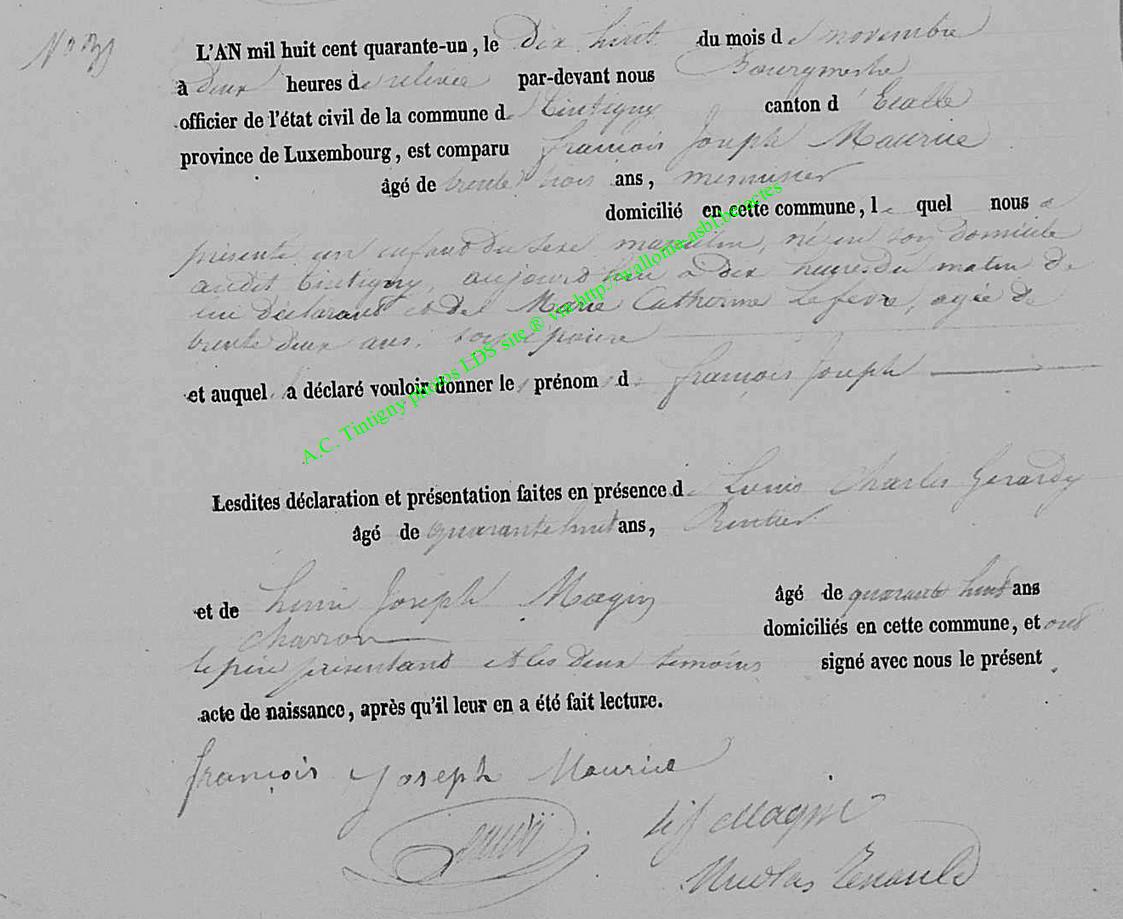 L'AN mil huit cent quarante-un, le Dix huit du mois de novembre
à deux heures de relevée par-devant nous Bourgmestre
officier de l'état civil de la commune de Tintigny canton d' Etalle
province de Luxembourg, est comparu François Joseph Maurice
âgé de trente trois ans, menuisier
domicilié en cette commune, le quel nous a
présenté un enfant du sexe masculin, né en son domicile
audit Tintigny, aujourd'hui à dix heures du matin de
lui Déclarant et de Marie Catherine Lefevre, agée de
trente deux ans, son épouse
et auquel a déclaré vouloir donner le prénom de François Joseph
A.C. Tintigny photos LDS site ® via http://wallonia-asbl.be/actes
Lesdites déclaration et présentation faites en présence de Louis Charles Gerardy
âgé de quarante huit ans, Rentier
et de Henri Joseph Magin âgé de quarante huit ans
charron domiciliés en cette commune, et ont
le père présentant et les deux temoins signé avec nous le présent
acte de naissance, après qu'il leur en a été fait lecture.
françois Joseph Maurice
Magin
Nicolas